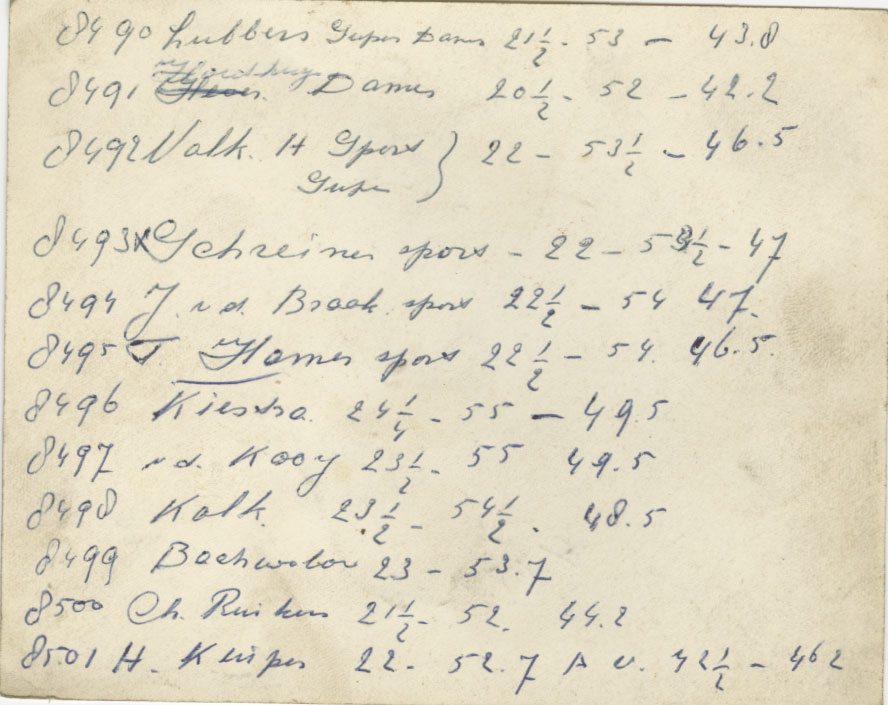 8490 Lubbers Super Dames 21 1/2 - 53 - 43.8
8491 Dames 20 1/2 - 52 - 42.2
8492 Valk. H Sport } 22 - 53 1/2 - 46.5
Super
8493 x Schreiner sport - 22 - 53 1/2 - 47
8494 J. v.d. Braak sport 22 1/2 - 54 47.
8495 T. Hames sport 22 1/2 - 54. 46.5.
8496 Kiestra. 24 1/4 - 55 - 49.5
8497 v.d. Kooy 23 1/2 - 55 49.5
8498 Kalk. 23 1/2 - 54 1/2 . 48.5
8499 23 - 53.7
8500 Ch. 21 1/2 - 52. 44.2
8501 H. Kuiper 22 - 52.7 A v. 42 1/2 - 462